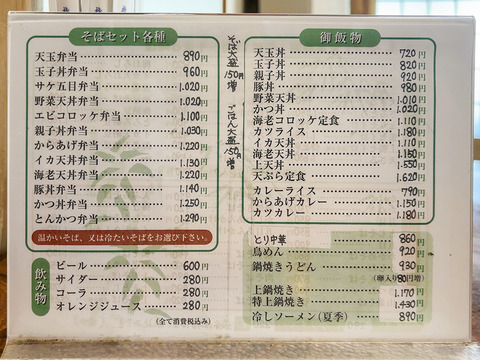 そばセット各種
天玉弁当 890円
玉子丼弁当 960円
サケ五目弁当 1.020円
野菜天丼弁当 1.020円
エビコロッケ弁当 1.100円
親子丼弁当 1.030円
からあげ弁当 1.220円
イカ天丼弁当 1.130円
海老天丼弁当 1.220円
豚丼弁当 1.140円
かつ丼弁当 1.250円
とんかつ弁当 1.290円
温かいそば、又は冷たいそばをお選び下さい。
飲み物
ビール 600円
サイダー 280円
コーラ 280円
オレンジジュース 280円
(全て消費税込み)
そば大盛150円増
ごはん大盛150円増
御飯物
天玉丼 720円
玉子丼 820円
親子丼 920円
豚丼 980円
野菜天丼 1.010円
かつ丼 1.020円
海老コロッケ定食 1.110円
カツライス 1.180円
イカ天丼 1.110円
海老天丼 1.150円
上天丼 1.550円
天ぷら定食 1.620円
カレーライス 790円
からあげカレー 1.150円
カツカレー 1.180円
とり中華 860円
鳥めん 920円
鍋焼きうどん 930円
(餅入り80円増)
上鍋焼き 1.170円
特上鍋焼き 1.430円
冷しソーメン(夏季) 890円